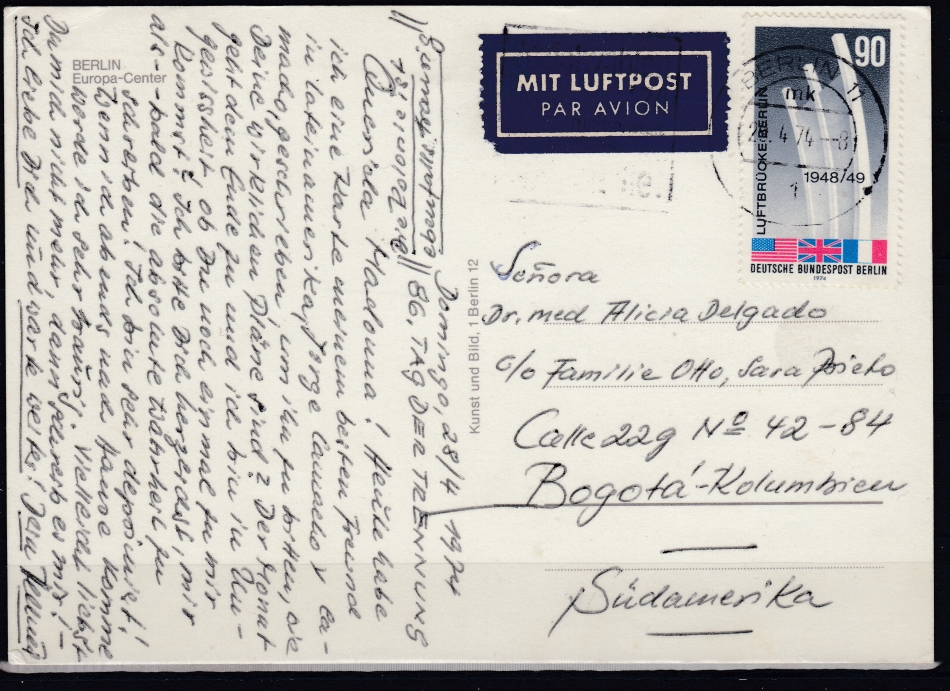 BERLIN
Europa-Center
Domingo, 28/4 1974
86. TAG DER TRENNUNG
Querida Madonna! Heute habe
ich eine Karte meinem besten Freund
in Lateinamerika, Jorge Camacho y Ca-
macho, geschrieben um ihn zu bitten, wie
Deine wirklichen Pläne sind? Der Monat
geht dem Ende zu und ich bin in Un-
gewissheit ob Du noch einmal zu mir
kommst? Ich bitte Dich herzlichst, mir
als-bald die absolute Wahrheit zu
schreiben! Ich bin sehr deprimiert!
Wenn ich abends nach Hause komme
werde ich sehr traurig. Vielleicht liebst
Du mich nicht mehr, dann schreib es mir! -
Ich liebe Dich und warte weiter! Dein
Kunst und Bild, 1 Berlin 12
MIT LUFTPOST
PAR AVION
90
LUFTBRÜCKE BERLIN
1948/49
DEUTSCHE BUNDESPOST BERLIN
1974
BERLIN 11
mk
4 74 --8
1
Señora
Dr. med Alicia Delgado
c/o Familie Otto, Sara Prieto
Calle 22g Nº 42-84
Bogotá-Kolumbien
Südamerika